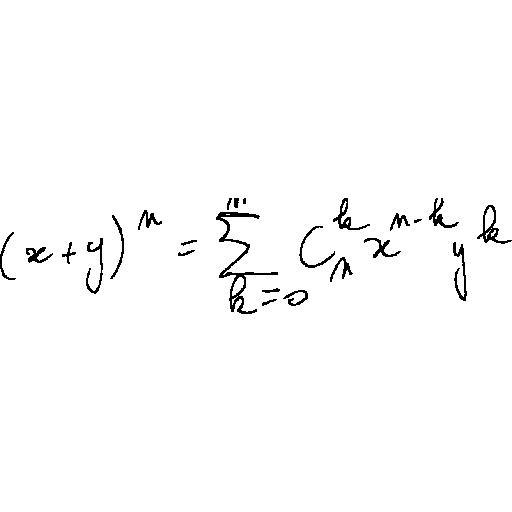 (x+y)^n = \sum_{k=0}^{n} C_n^k x^{n-k} y^k